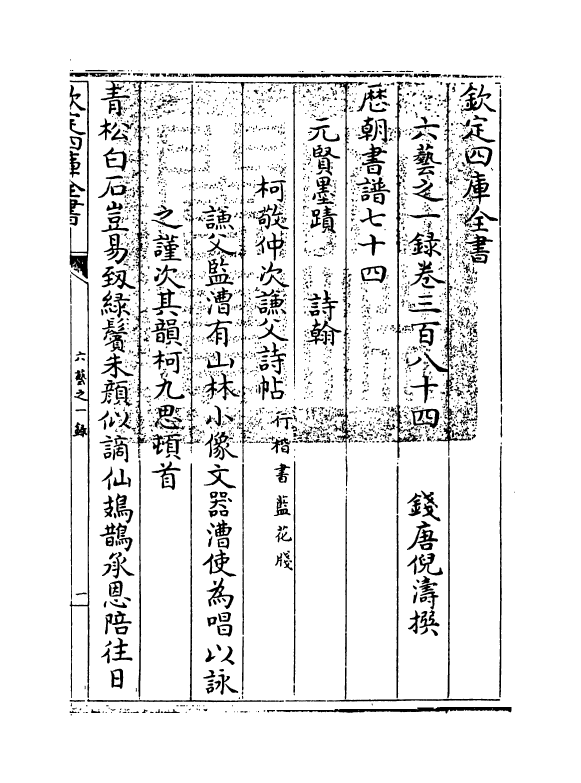 欽定四庫全書
六藝之一錄卷三百八十四
錢唐倪濤撰
歷朝書譜七十四
元賢墨蹟 詩翰
柯敬仲次謙父詩帖 行楷書藍花牋
謙父監漕有山林小像文器漕使為唱以詠
之謹次其韻柯九思頓首
青松白石豈易致綠鬢朱顏似謫仙鳷鵲承恩陪往日
欽定四庫全書
六藝之一錄